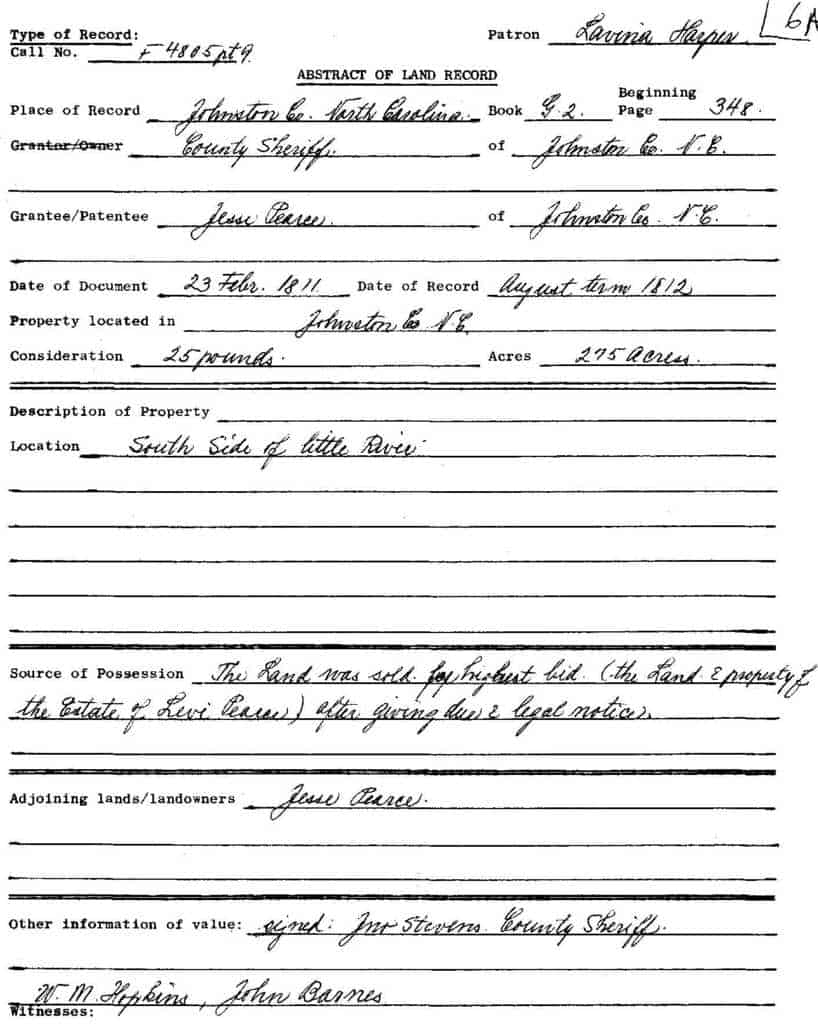 6A
Type of Record: Patron Lavinia Harper
Call No. F 4805 pt 9
ABSTRACT OF LAND RECORD
Place of Record Johnston Co. North Carolina. Book G.2. Beginning Page 348.
Grantor/Owner County Sheriff. of Johnston Co. N.C.
Grantee/Patentee Jesse Pearce. of Johnston Co. N.C.
Date of Document 23 Febr. 1811. Date of Record August term 1812
Property located in Johnston Co N.C.
Consideration 25 pounds. Acres 275 Acres.
Description of Property
Location South Side of little River
Source of Possession The Land was sold for highest bid. (the Land & property of
the Estate of Levi Pearce) after giving due & legal notice.
Adjoining lands/landowners Jesse Pearce.
Other information of value: signed: Jno Stevens. County Sheriff.
W. M. Hopkins, John Barnes
Witnesses: